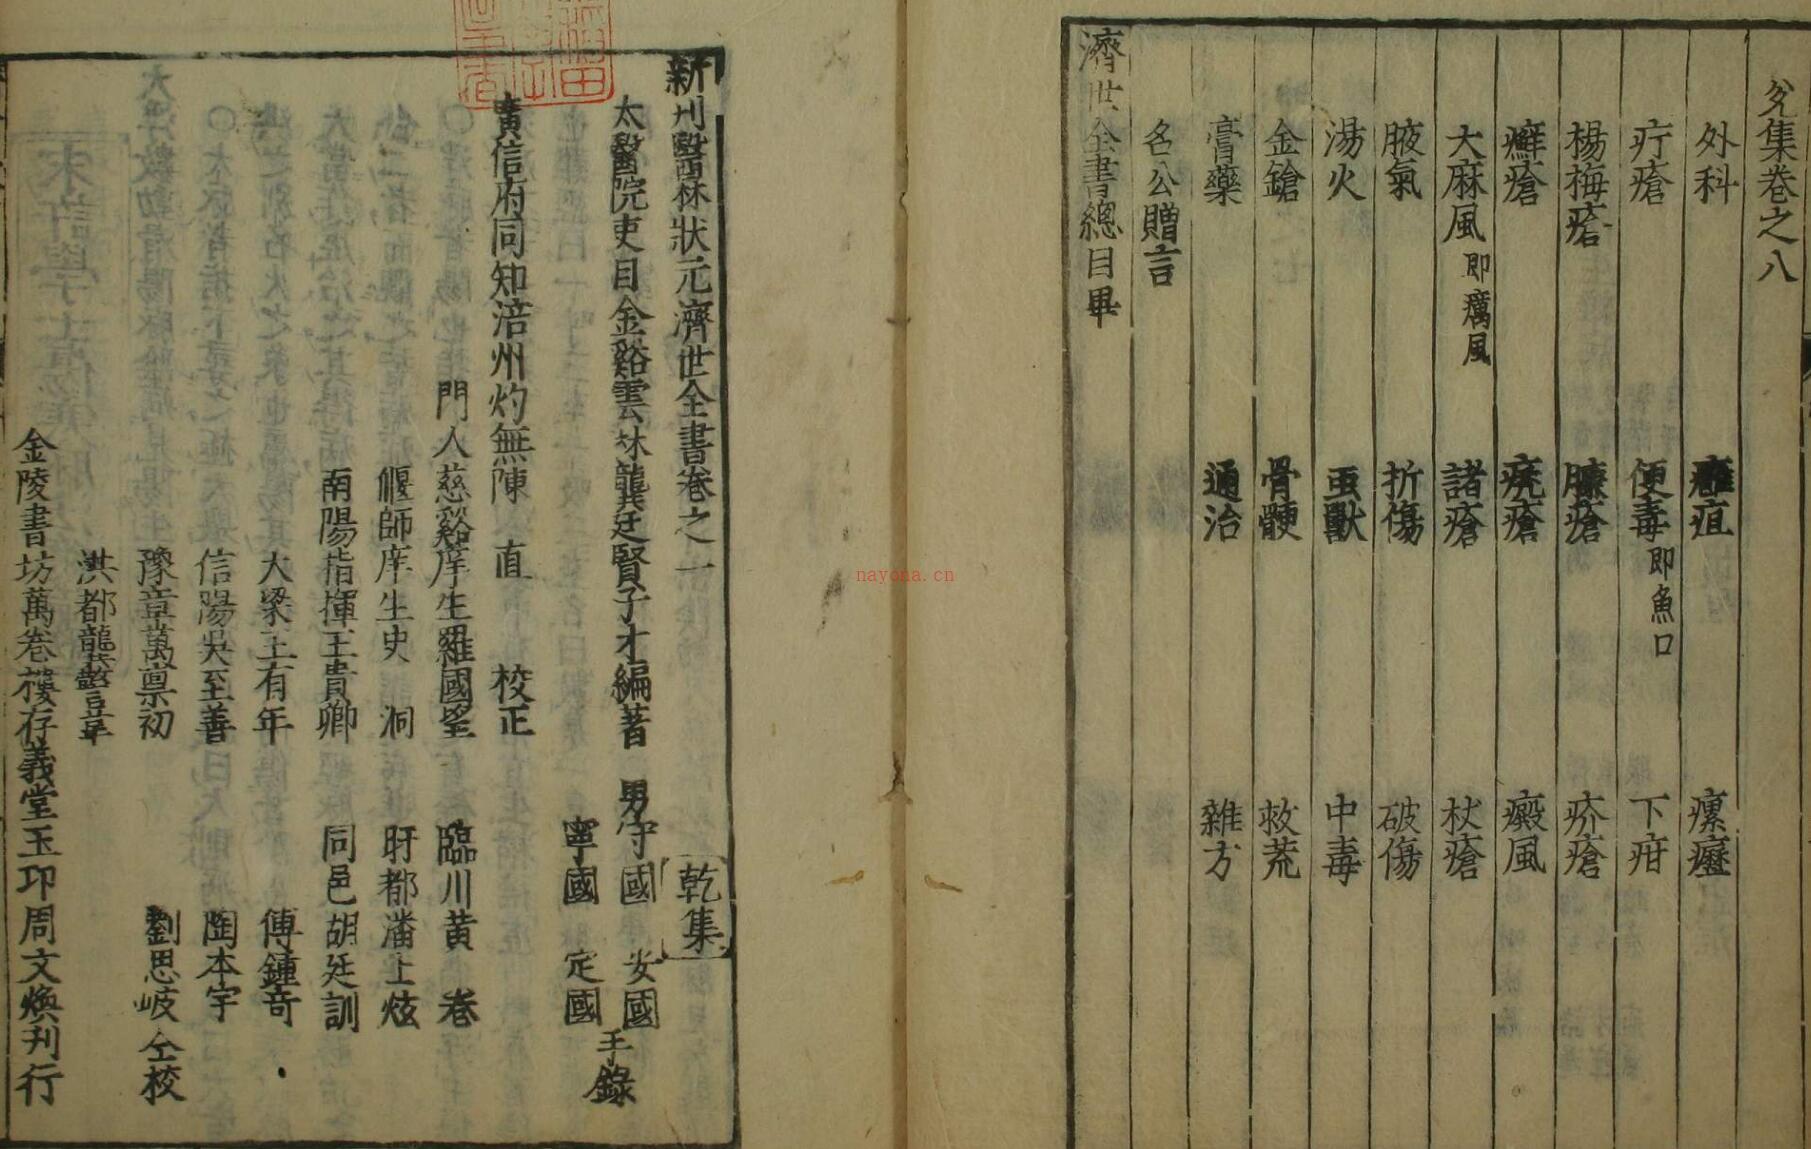 兌集卷之八
外科 癰疽 瘰癧
疔瘡 便毒即魚口 下疳
楊梅瘡 臁瘡 疥瘡
癬瘡 疣瘡 癜風
大麻風即癘風 諸瘡 杖瘡
腋氣 折傷 破傷
湯火 䖝獸 中毒
金鎗 骨骾 救荒
膏藥 通治 雜方
名公贈言
濟世全書總目畢
新刊醫林狀元濟世全書卷之一 乾集
太醫院吏目金谿雲林龔廷賢子才編著 男守國 安國
寧國 定國 手錄
廣信府同知涪州灼無陳 直 校正
門人慈谿庠生羅國望 臨川黄 卷
偃師庠生史 洞 旴都潘士炫
南陽指揮王貴卿 同邑胡廷訓
大梁王有年 傅鍾奇
信陽吳至善 陶本宇
豫章萬禀初 劉思岐仝校
洪都龔懋章
金陵書坊萬卷樓存義堂玉卭周文煥刋行
nayona.cn